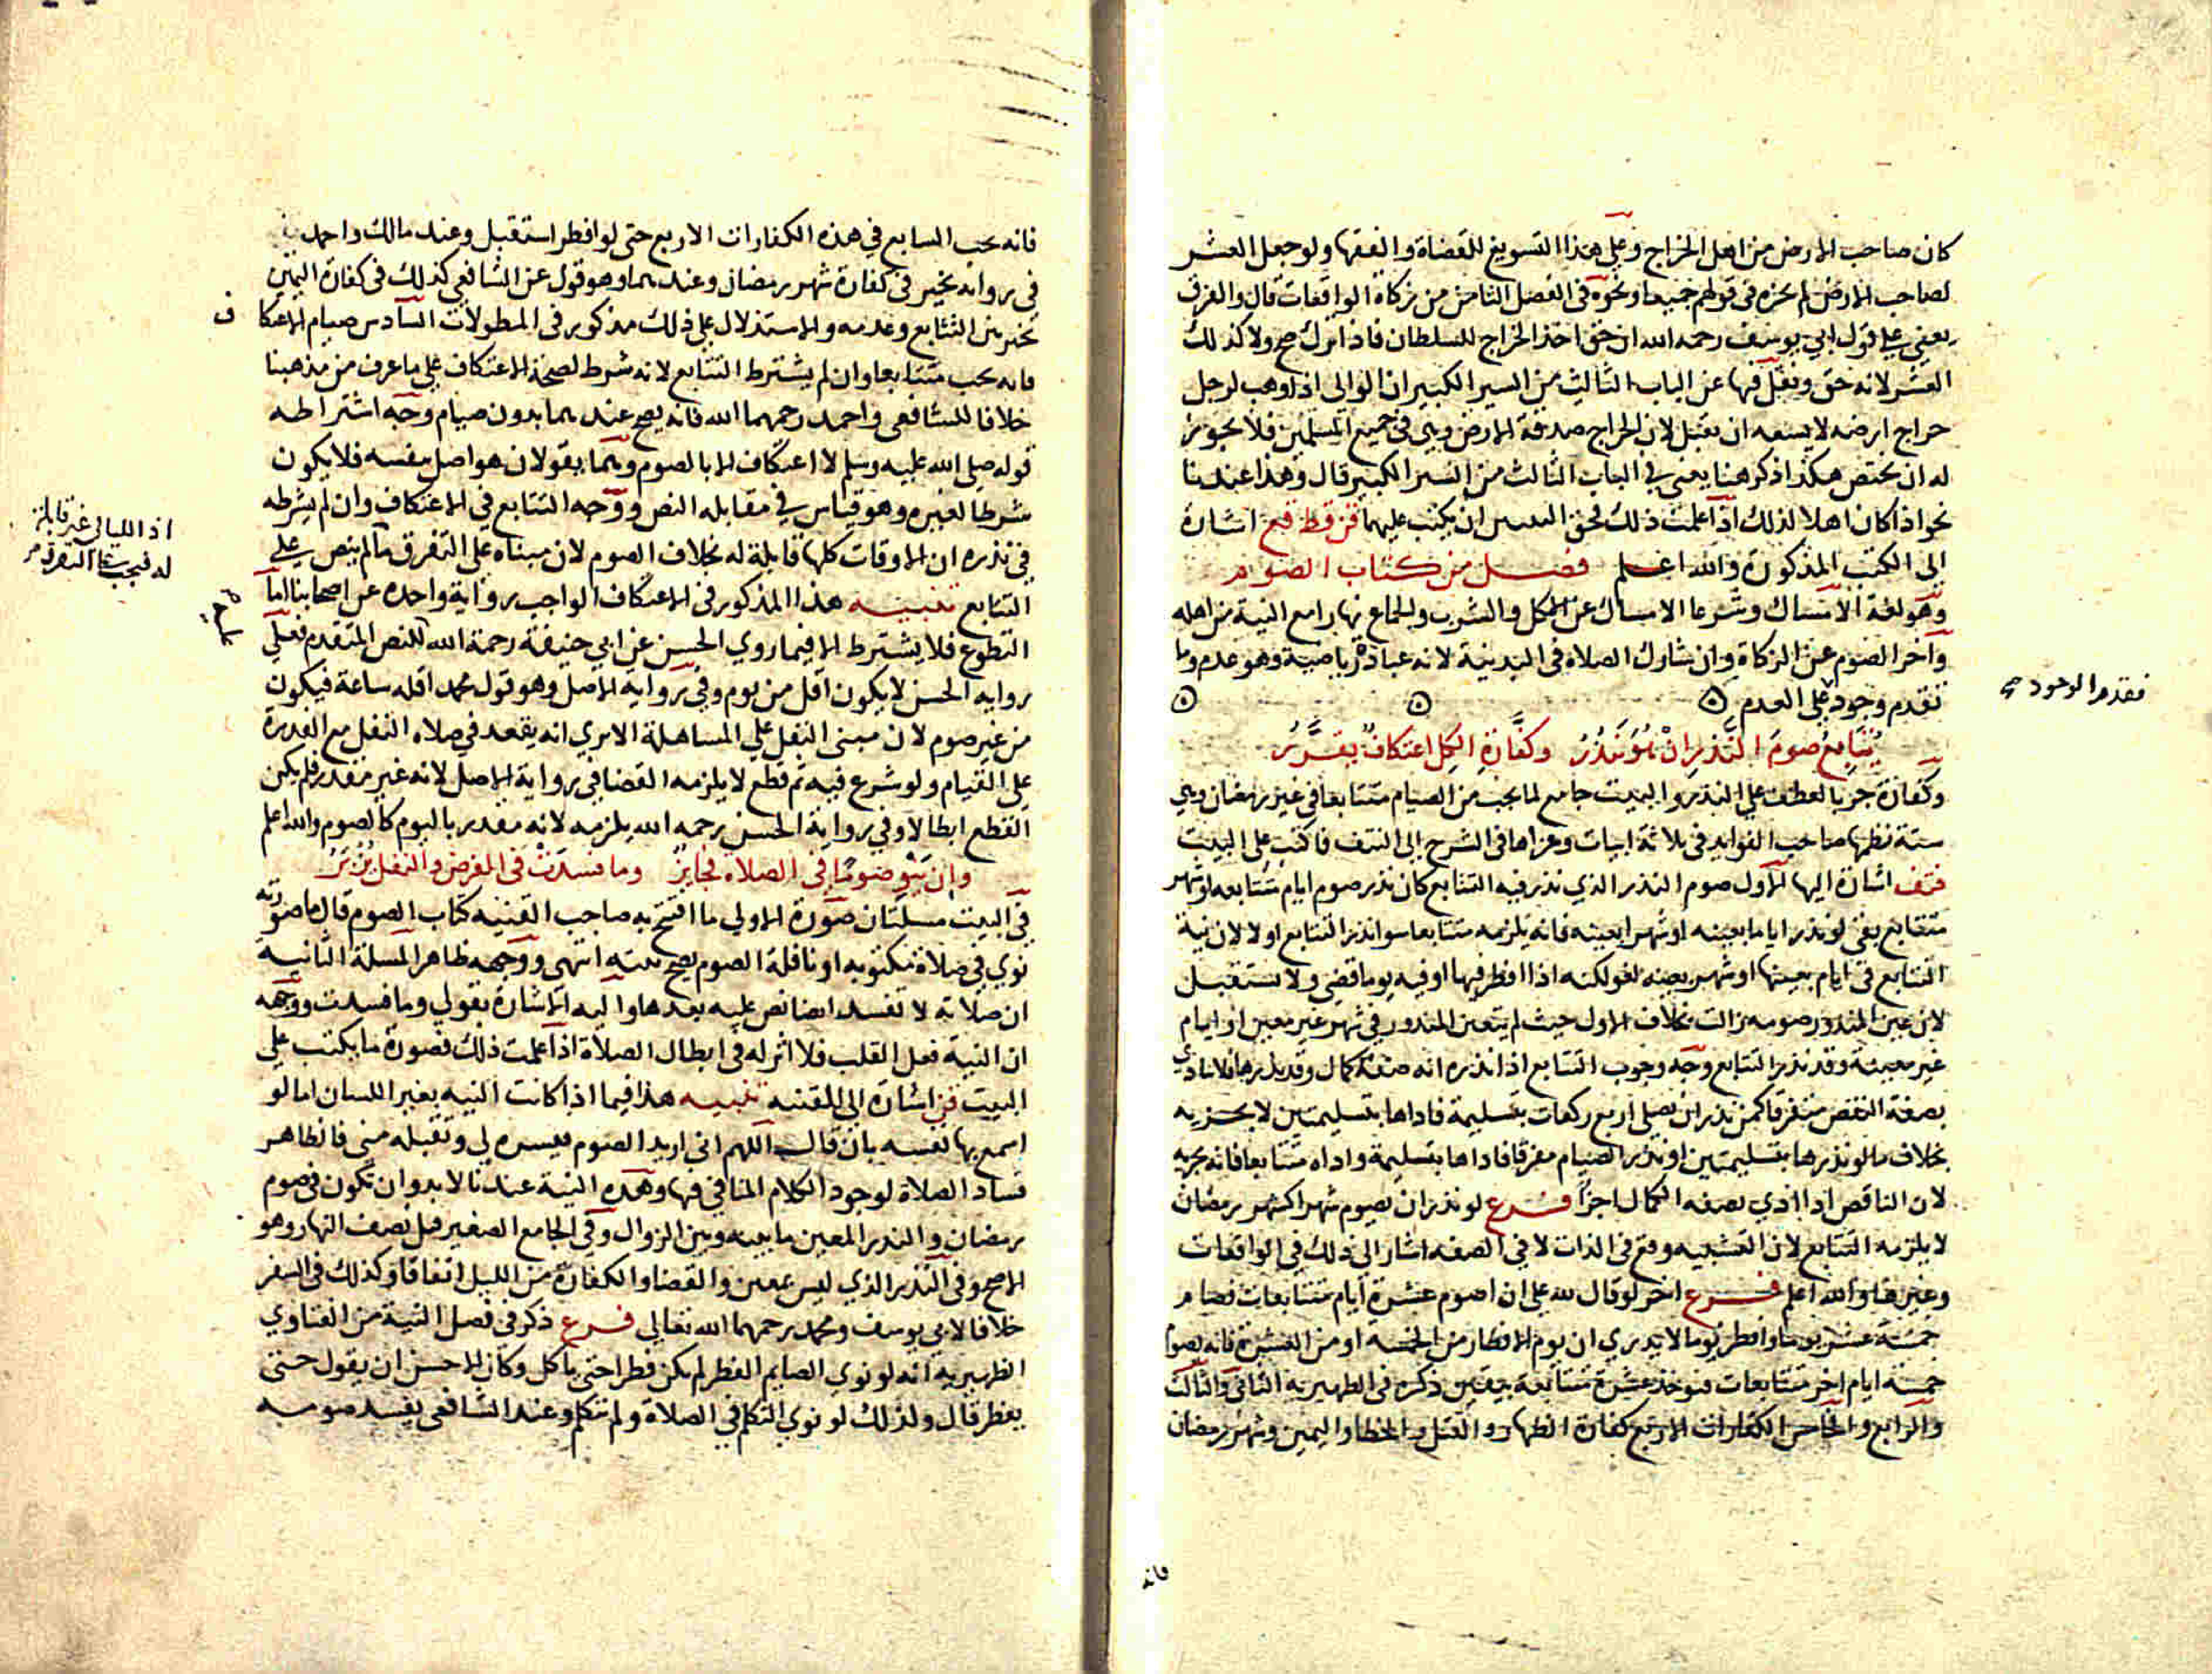 كان صاحب الارض من اهل الخراج وعلى هذا التسويغ للقضاة والفقها ولو جعل العشر
لصاحب الارض لم يجزه في قولهم جميعا ونحوه في الفصل الثامن من زكاة الواقعات قال والفرق
يعني على قول ابي يوسف رحمه الله ان حق اخذ الخراج للسلطان فاذا ترك صح ولا كذلك
العشر لانه حق ونقل فيها عن الباب الثالث من السير الكبير ان الوالي اذا وهب لرجل
خراج ارضه لا يسعه ان يقبل لان الخراج صدقة الارض وهي في جميع المسلمين فلا يجوز
له ان يختص هكذا ذكر هنا يعني في الباب الثالث من السير الكبير قال وهذا عندنا
نحو اذا كان اهلا لذلك اذا علمت ذلك فحق البيتين ان يكتب عليهما اشارة
الى الكتب المذكورة والله اعلم فصل من كتاب الصوم
وهو لغة الامساك وشرعا الامساك عن الاكل والشرب والجماع نهارا مع النية من اهله
واخر الصوم عن الزكاة وان شارك الصلاة في البدنية لانه عبادة رياضية وهو عدم وما
تقدم وجود على العدم
فقدم الوجود صح
يُتابع صوم النذر ان وكفارة الكل اعتكاف يقرر
وكفارة جر بالعطف على النذر والبيت جامع لما يجب من الصيام متتابعا في غير رمضان وهي
ستة نظمها صاحب الفوايد في ثلاثة ابيات وعزاها في الشرح الى النتف فاكتب على البيت
فتف اشارة اليها الاول صوم النذر الذي نذر فيه التتابع كان نذر صوم ايام متتابعة او شهر
متتابع يعني لو نذر اياما بعينه او شهرا بعينه فانه يلزمه متتابعا سوا نذر التتابع او لا لان نية
التتابع في ايام بعينها او شهر بعينه لغو لكنه اذا افطر فيها او فيه يوما قضى ولا يستقبل
لان عين المنذور صومه زالت بخلاف الاول حيث لم يتعين المنذور في شهر غير معين او ايام
غير معينة وقد نذر التتابع وجه وجوب التتابع اذا نذره انه صفة كمال وقد نذرها فلا تادي
بصفة النقص متفرقا كمن نذر ان يصلي اربع ركعات بتسليمة فاداها بتسليمتين لا يجزيه
بخلاف ما لو نذرها بتسليمتين او نذر الصيام مفرقا فاداها بتسليمة واداه متتابعا فانه يجزيه
لان الناقص اذا ادي بصفه الكمال اجزا فرع لو نذر ان يصوم شهرا كشهر رمضان
لا يلزمه التتابع لان التشبيه وقع في الذات لا في الصفه اشار الى ذلك في الواقعات
وغيرها والله اعلم فرع اخر لو قال لله علي ان اصوم عشرة ايام متتابعات فصام
خمسة عشر يوما وافطر يوما لا يدري ان يوم الافطار من الخمسة او من العشرة فانه يصوم
خمسة ايام اخر متتابعات فتوخذ عشرة متتابعة بيقين ذكره في الظهيرية الثاني والثالث
والرابع والخامس الكفارات الاربع كفارة الظهار والقتل والخطا واليمين وشهر رمضان
فانه
فانه يجب التتابع في هذه الكفارات الاربع حتى لو افطر استقبل وعند مالك واحمد
في رواية يخير في كفارة شهر رمضان وعندهما وهو قول عن الشافعي كذلك في كفارة اليمين
يخير بين التتابع وعدمه والاستدلال على ذلك مذكور في المطولات السادس صيام الاعتكاف
فانه يجب متتابعا وان لم يشترط التتابع لانه شرط لصحة الاعتكاف على ما عرف من مذهبنا
خلافا للشافعي واحمد رحمهما الله فانه يصح عندهما بدون صيام وجه اشتراطه
قوله صلى الله عليه وسلم لا اعتكاف الا بالصوم وهما يقولان هو اصل بنفسه فلا يكون
شرطا لغيره وهو قياس في مقابلة النص ووجه التتابع في الاعتكاف وان لم يشرطه
في نذره ان الاوقات كلها قابلة له بخلاف الصوم لان مبناه على التفرق ما لم ينص على
اذ الليالي غير قابلة
له فيجب على التفرق
التتابع تنبيه هذا المذكور في الاعتكاف الواجب رواية واحدة عن اصحابنا اما
التطوع فلا يشترط الا فيما روي الحسن عن ابي حنيفة رحمة الله للنص المتقدم فعلى
رواية الحسن لا يكون اقل من يوم وفي رواية الاصل وهو قول محمد اقله ساعة فيكون
من غير صوم لان مبنى النفل على المساهلة الا يرى انه يقعد في صلاة النفل مع القدرة
على القيام ولو شرع فيه ثم قطع لا يلزمه القضا في رواية الاصل لانه غير مقدر فلم يكن
القطع ابطالا وفي رواية الحسن رحمه الله يلزمه لانه مقدر باليوم كالصوم والله اعلم
وان ينو صوما في الصلاة فجايز وما فسدت في الفرض والنفل
في البيت مسلتان صورة الاولى ما افتتح به صاحب القنيه كتاب الصوم قال ما صورته
نوي في صلاة مكتوبه او نافلة الصوم يصح نيته انتهى ووجهه ظاهر المسلة الثانية
ان صلاته لا تفسد ايضا نص عليه بعدها واليه الاشارة بقولي وما فسدت ووجهه
ان النية فعل القلب فلا اثر له في ابطال الصلاة اذا علمت ذلك فصورة ما يكتب على
البيت فن اشارة الى القنيه تنبيه هذا فيما اذا كانت النيه بغير اللسان اما لو
اسمع بها نفسه بان قال اللهم اني اريد الصوم فيسره لي وتقبله مني فالظاهر
فساد الصلاة لوجود الكلام المنافي فيها وهذه النية عندنا لابد وان تكون في صوم
رمضان والنذر المعين ما بينه وبين الزوال وفي الجامع الصغير قبل نصف النهار وهو
الاصح وفي النذر الذي ليس بمعين والقضا والكفارة من الليل اتفاقا وكذلك في السفر
خلافا لابي يوسف ومحمد رحمهما الله تعالى فرع ذكر في فصل النية من الفتاوي
الظهيرية انه لو نوي الصايم الفطر لم يكن فطرا حتى ياكل وكان الاحسن ان يقول حتى
يفطر قال ولذلك لو نوي التكلم في الصلاة ولم يتكلم وعند الشافعي يفسد صومه